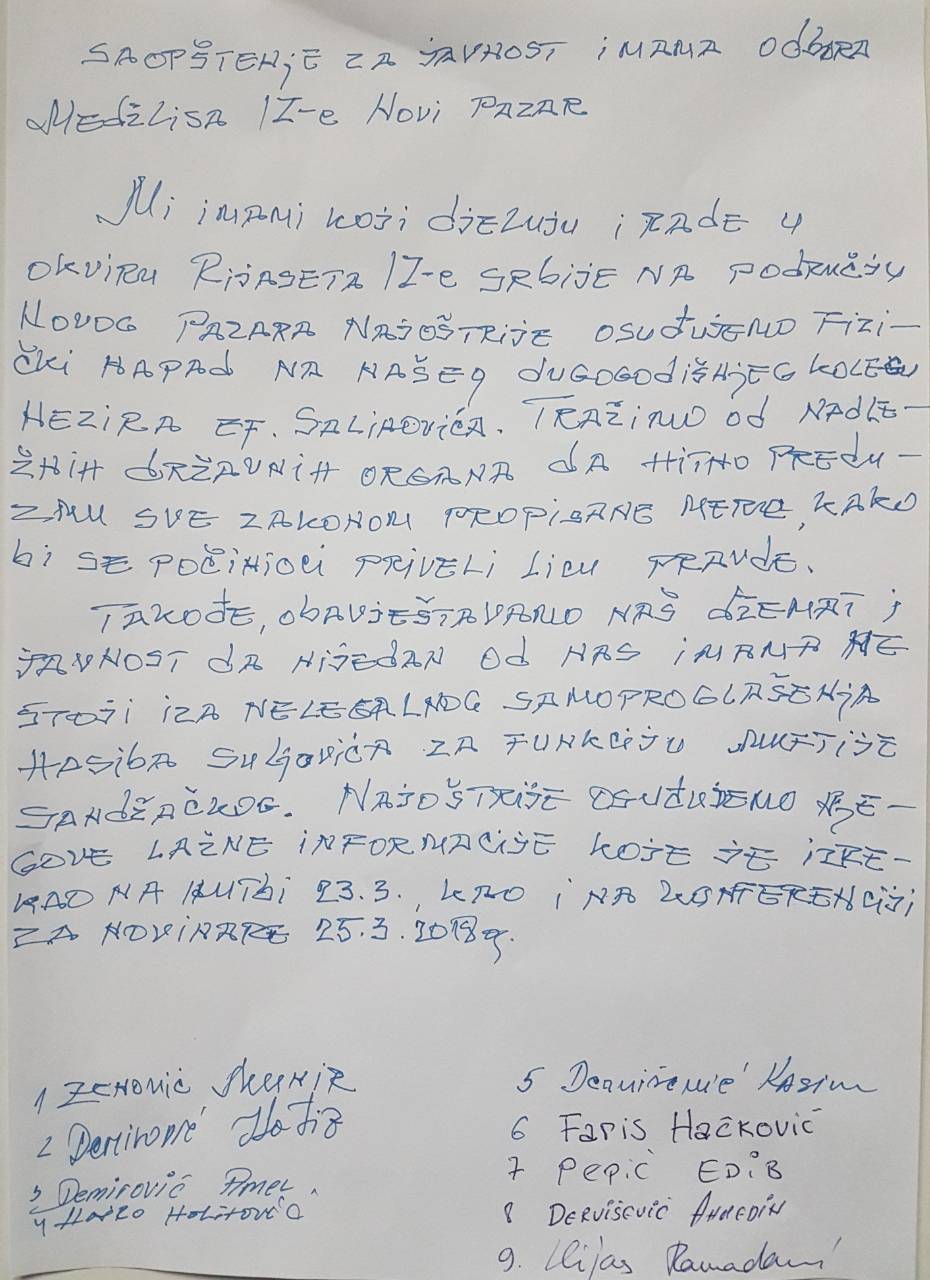 SAOPŠTENjE ZA JAVNOST IMAMA ODBORA
MEDŽLISA IZ-e NOVI PAZAR
Mi IMAMI KOJI DJELUJU I RADE U
OKVIRU RIJASETA IZ-e SRBIJE NA PODRUČJU
NOVOG PAZARA NAJOŠTRIJE OSUĐUJEMO FIZI-
ČKI NAPAD NA NAŠEG DUGOGODIŠNJEG KOLEGU
NEZIRA EF. SALIHOVIĆA. TRAŽIMO OD NADLE-
ŽNIH DRŽAVNIH ORGANA DA HITNO PREDU-
ZMU SVE ZAKONOM PROPISANE MERE, KAKO
BI SE POČINIOCI PRIVELI LICU PRAVDE.
TAKOĐE, OBAVJEŠTAVAMO NAŠ DŽEMAT I
JAVNOST DA NIJEDAN OD NAS IMAMA NE
STOJI IZA NELEGALNOG SAMOPROGLAŠENJA
HASIBA SULJOVIĆA ZA FUNKCIJU MUFTIJE
SANDŽAČKOG. NAJOŠTRIJE OSUĐUJEMO NJE-
GOVE LAŽNE INFORMACIJE KOJE JE IZRE-
KAO NA HUTBI 23.3., KAO I NA KONFERENCIJI
ZA NOVINARE 25.3.2018g.
1 ZENOVIĆ MUNIR
2 Demirović Hafiz
3 Demirović Amel
4
5 Dervišević Kasim
6 Faris Hačković
7 PEPIĆ EDIB
8 DERVIŠEVIĆ AHMEDIN
9. Ilijas Ramadani